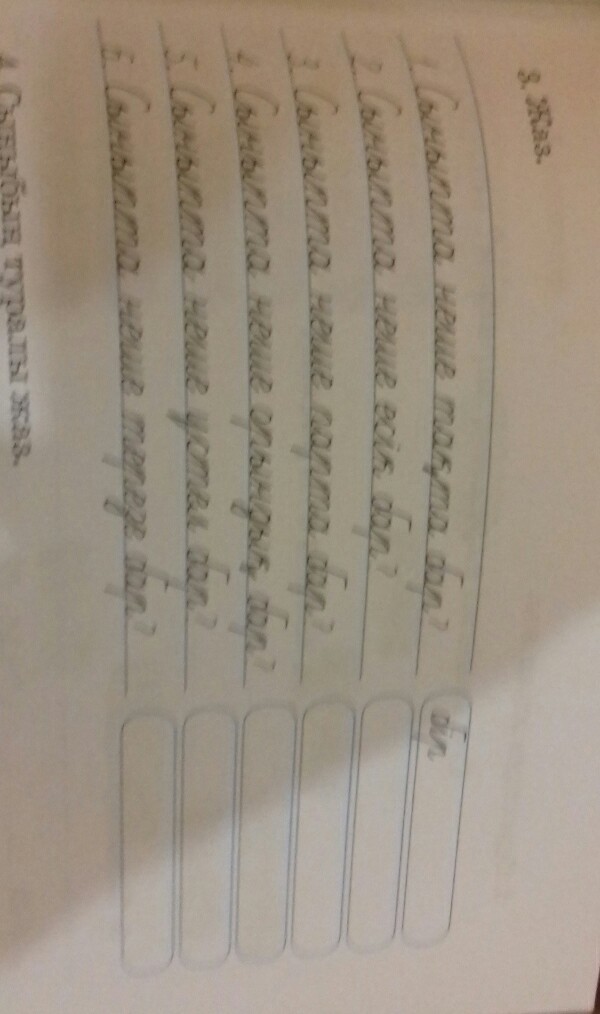 3. Жаз.
1. Сыныпта неше тақта бар? бір
2. Сыныпта неше есік бар?
3. Сыныпта неше парта бар?
4. Сыныпта неше орындық бар?
5. Сыныпта неше үстел бар?
6. Сыныпта неше терезе бар?
4. Сыныбың туралы жаз.